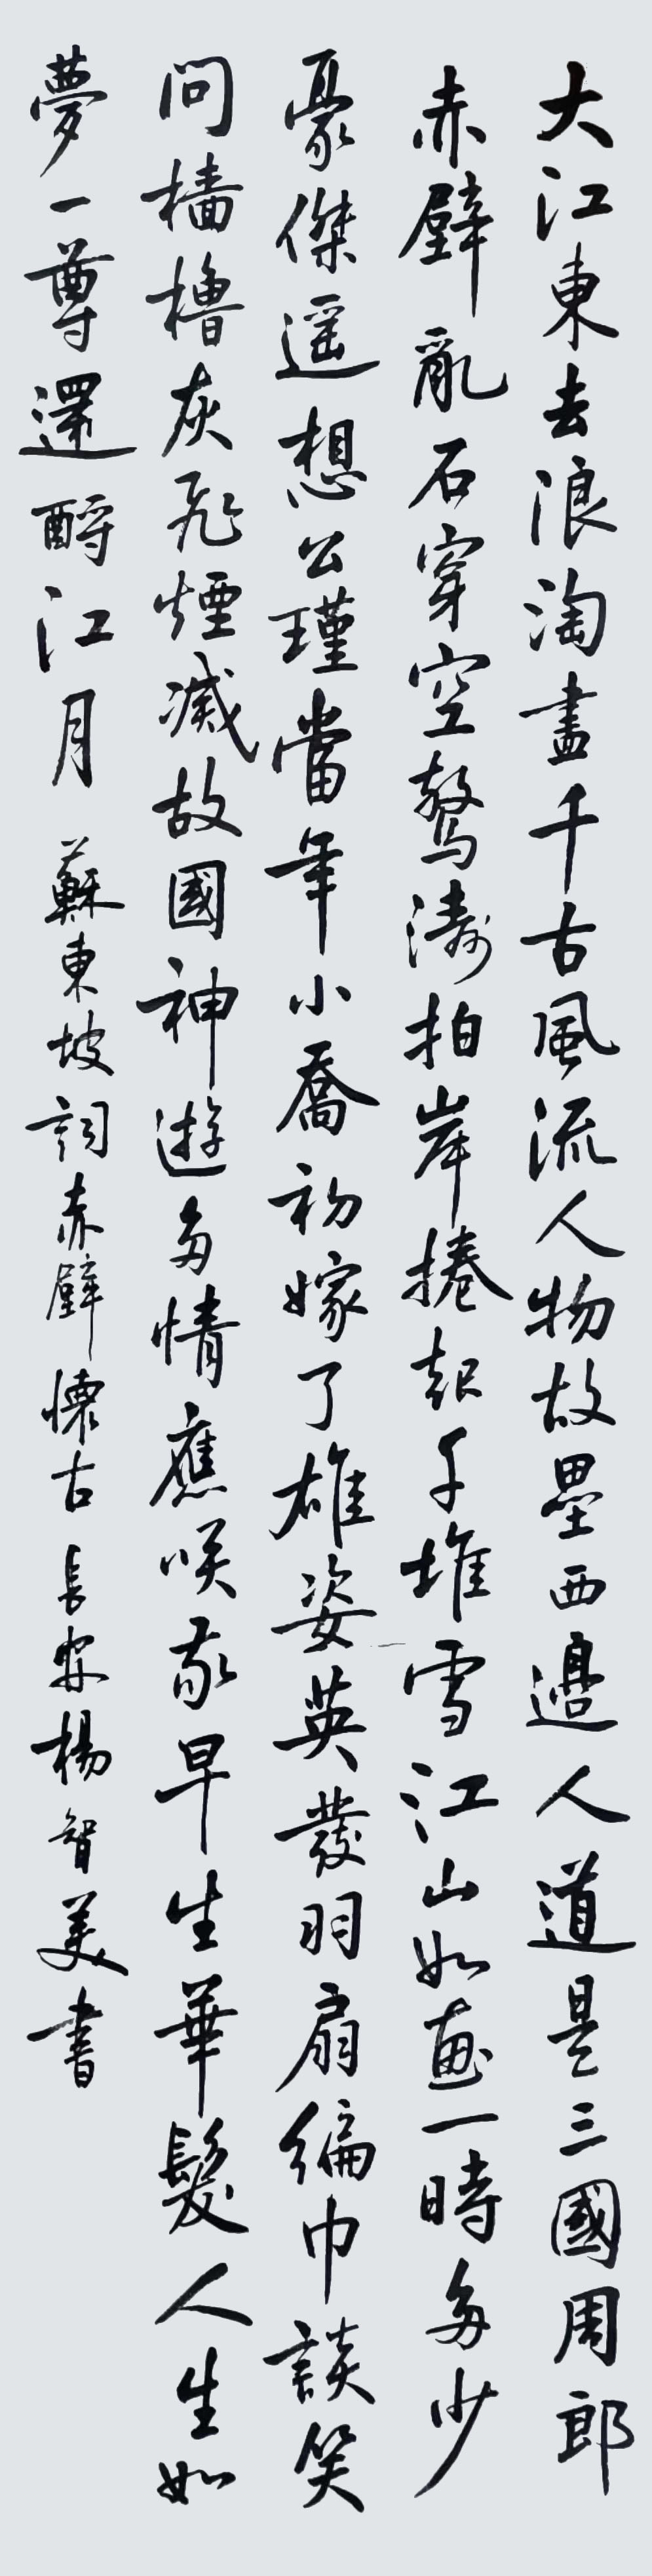 大江東去浪淘盡千古風流人物故壘西邊人道是三國周郎
赤壁亂石穿空驚濤拍岸捲起千堆雪江山如畫一時多少
豪傑遥想公瑾當年小喬初嫁了雄姿英發羽扇編巾談笑
問檣櫓灰飛煙滅故國神遊多情應咲我早生華髮人生如
夢一尊還酹江月 蘇東坡詞赤壁懷古 長安楊智美書